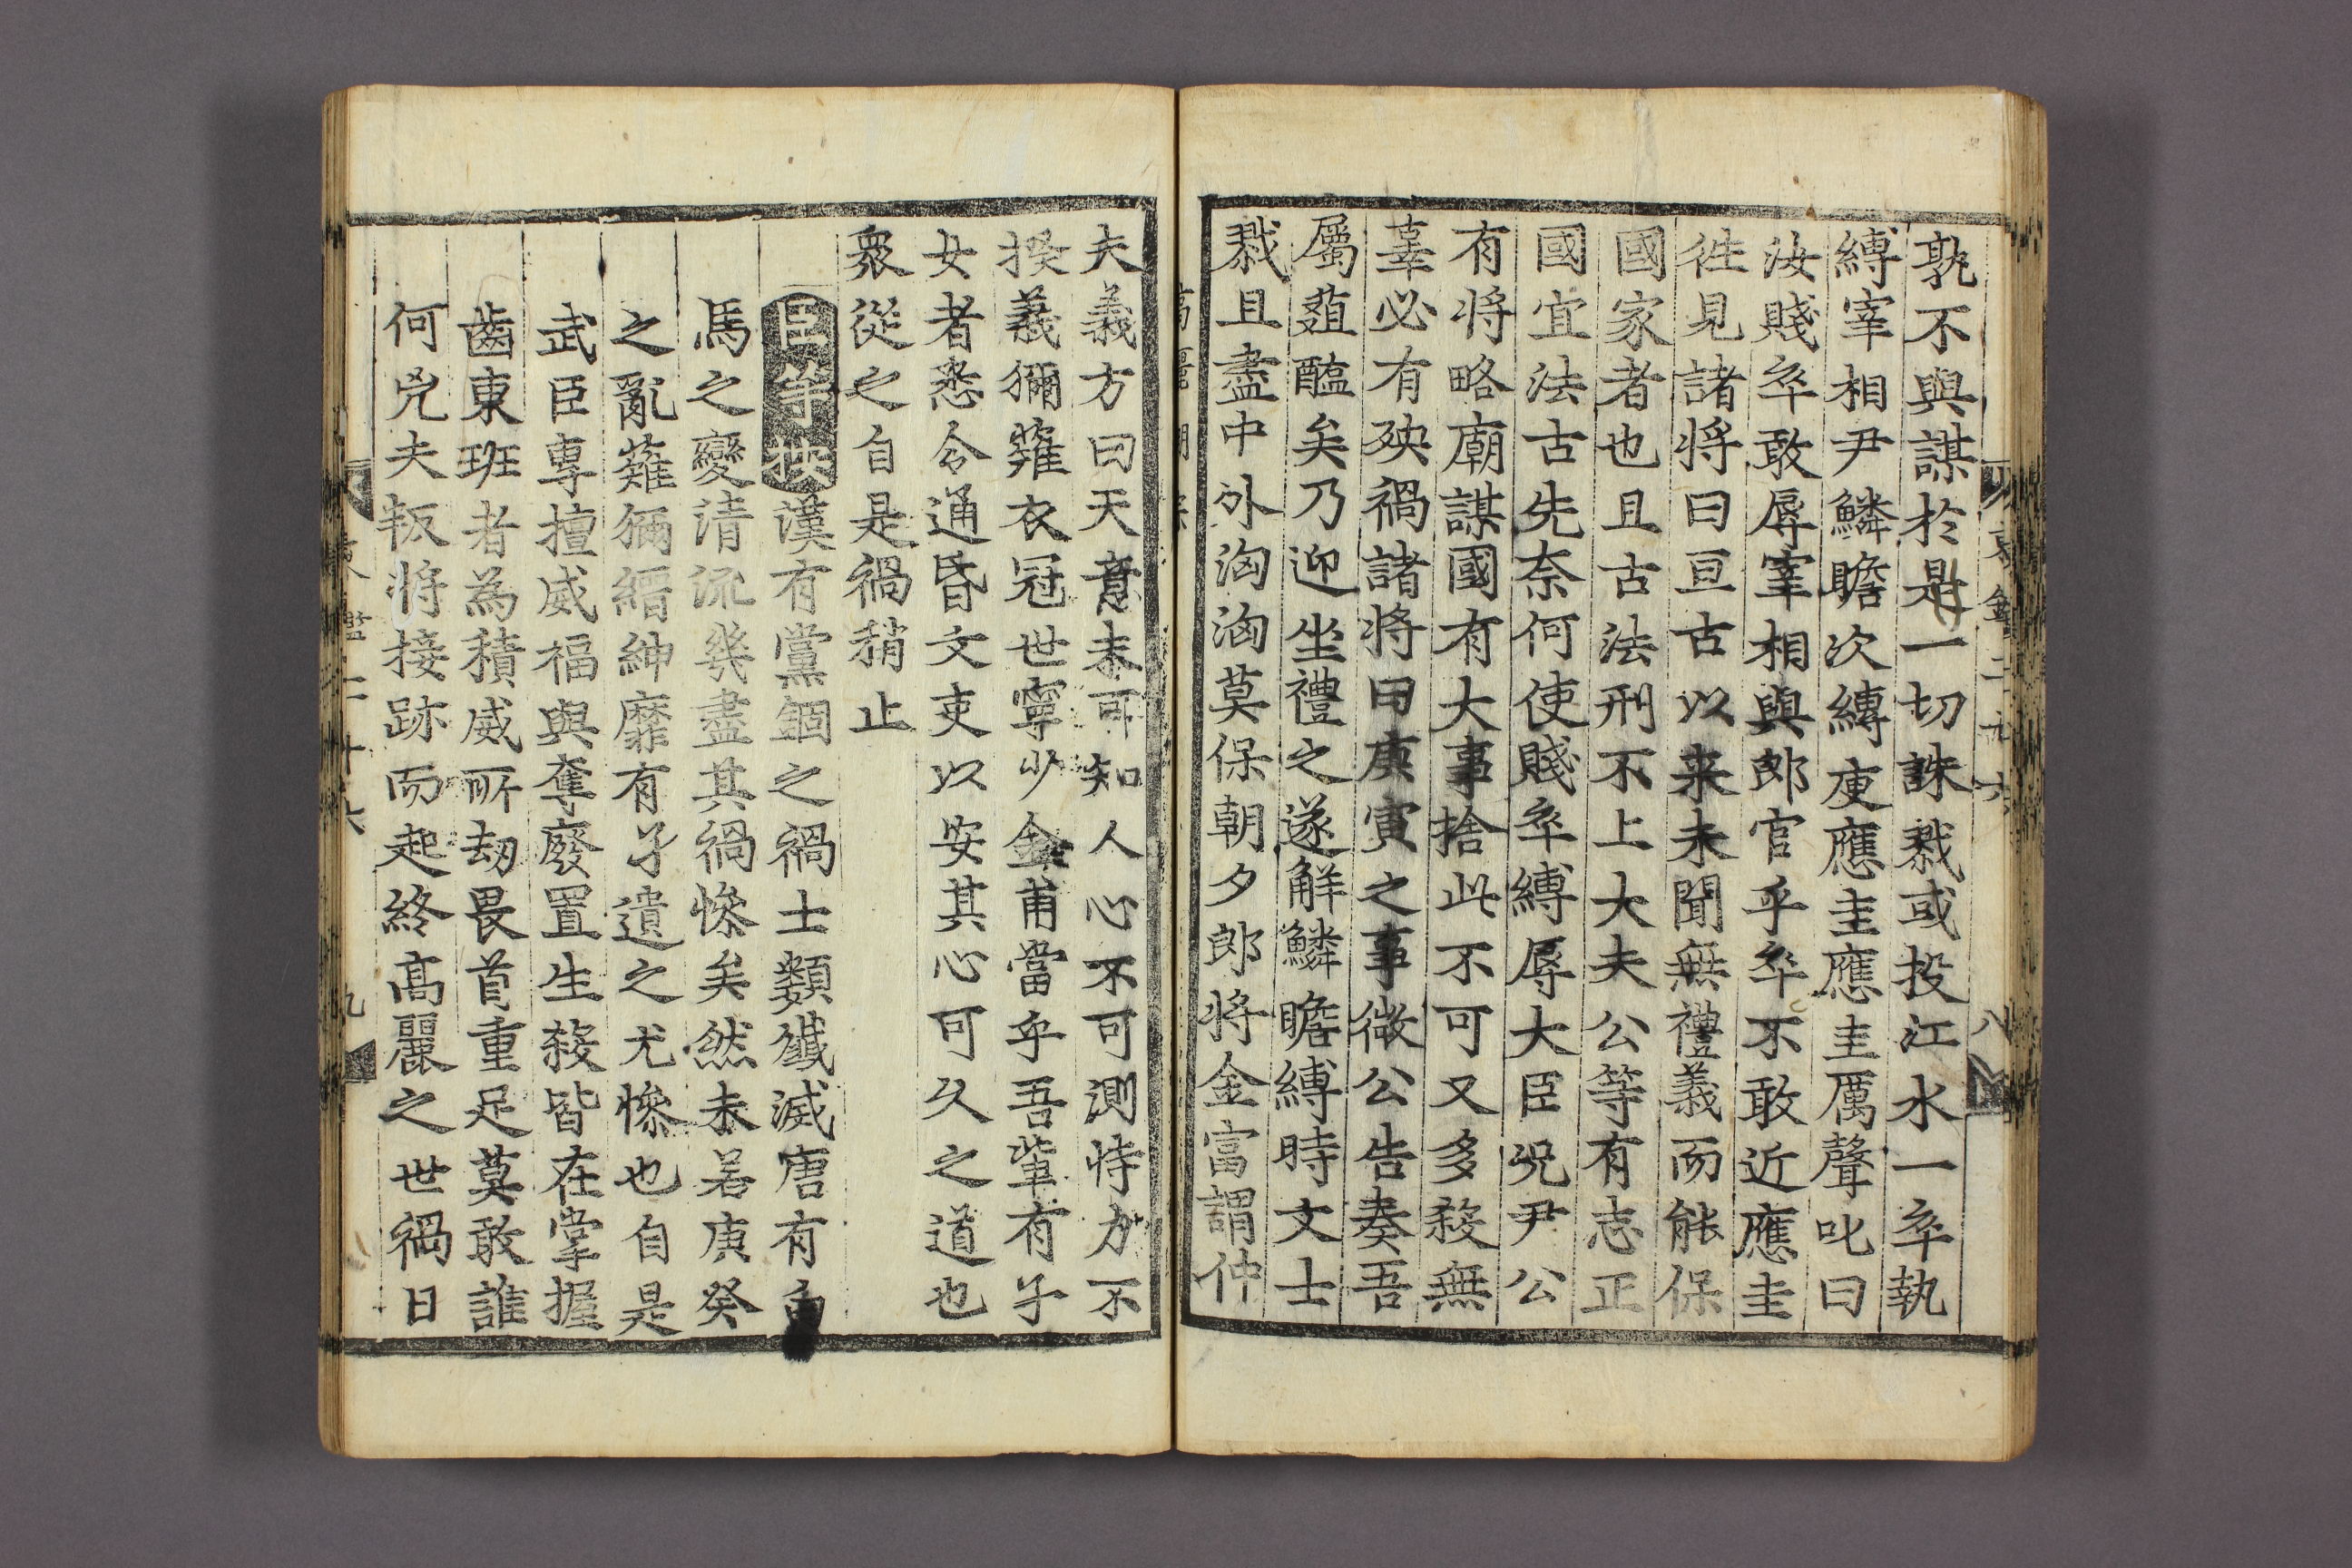 孰不與謀於是一切誅戮或投江水一卒執
縛宰相尹鱗瞻次縛庾應圭應圭厲聲叱曰
汝賤卒敢辱宰相與郎官乎卒不敢近應圭
徃見諸將曰亘古以来未聞無禮義而能保
國家者也且古法刑不上大夫公等有志正
國宜法古先奈何使賤卒縛辱大臣况尹公
有將略廟謀國有大事捨此不可又多殺無
辜必有殃禍諸將曰庚寅之事微公告奏吾
屬葅醢矣乃迎坐禮之遂解鱗瞻縛時文士
戮且盡中外洶洶莫保朝夕郎將金富謂仲
夫義方曰天意未可知人心不可測恃力不
揆義獮薙衣冠世寧少金甫當乎吾輩有子
女者悉令通昏文吏以安其心可久之道也
衆從之自是禍稍止
臣等按漢有黨錮之禍士類殱滅唐有白
馬之變清流幾盡其禍慘矣然未若庚癸
之亂薙獮縉紳靡有孑遺之尤慘也自是
武臣專擅威福與奪廢置生殺皆在掌握
齒東班者為積威所劫畏首重足莫敢誰
何兇夫叛將接跡而起終高麗之世禍日